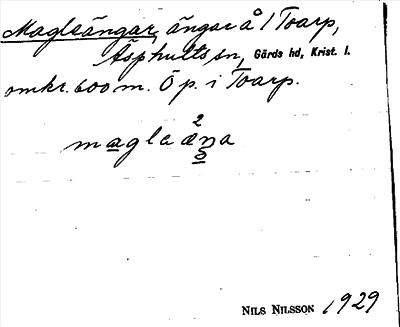 Magleängar, ängar å 1 Toarp,
Asphults sn, Gärds hd, Krist. l.
omkr. 600 m. Ö p. i Toarp.
2
maglaæŋa
NILS NILSSON 1929